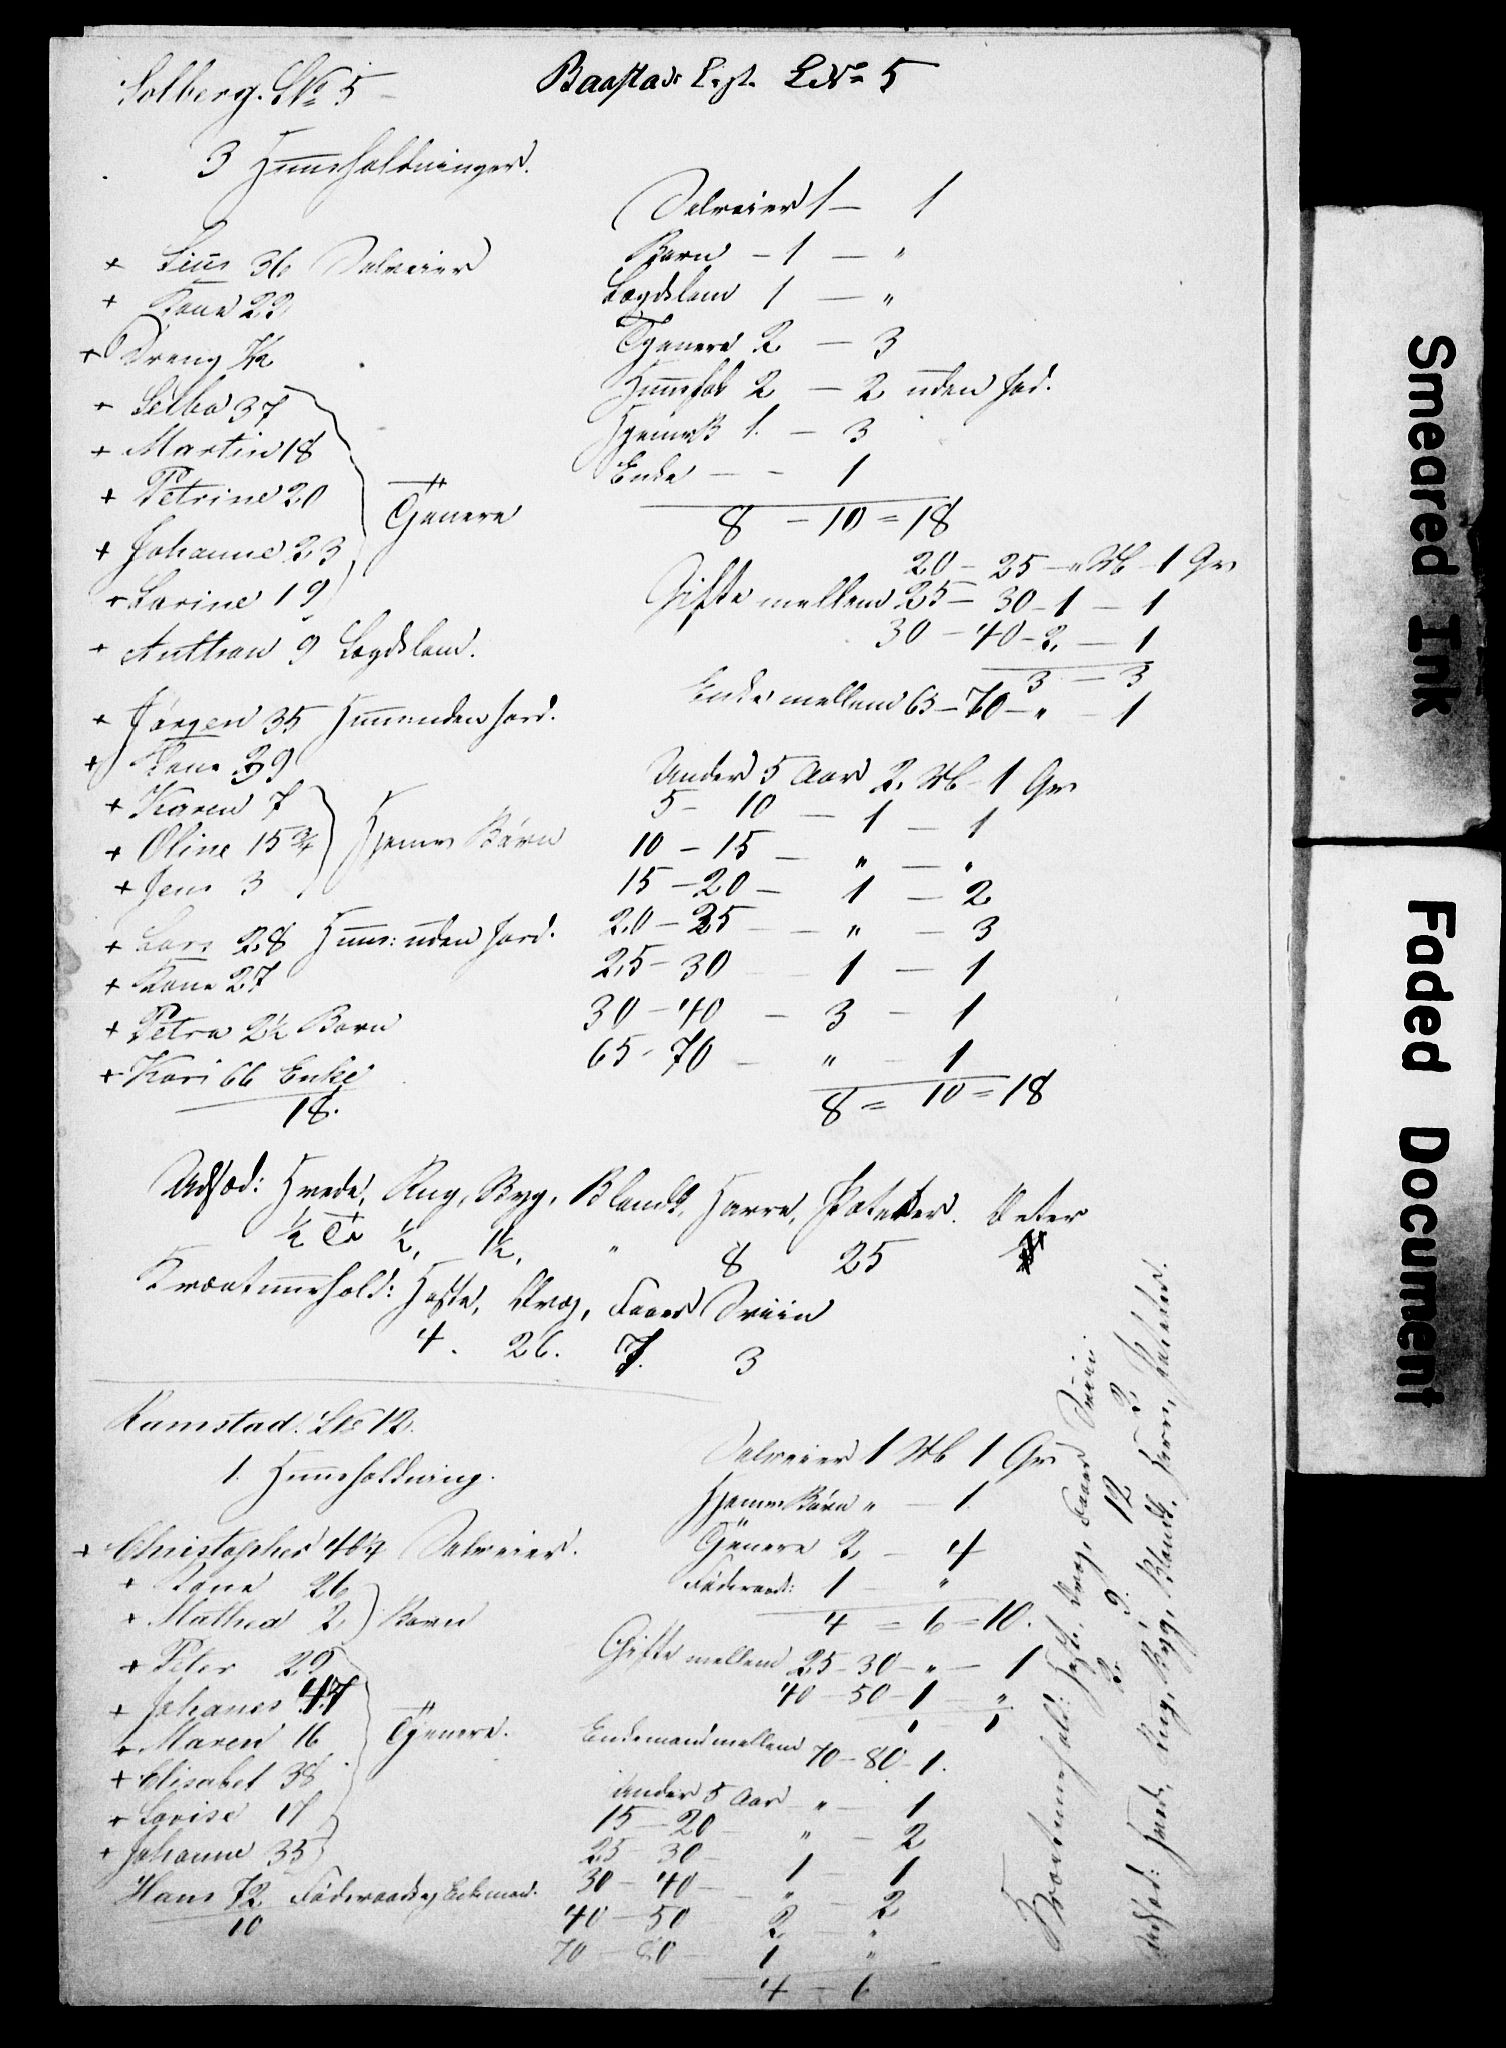 Solberg. LNo 5
Baastad Lgt. LNo 5
3 Huusholdninger.
+ Siver 36 Selveier
+ Kone 22
+ Dreng ½
+ Selba 37
+ Martin 18
+ Petrine 20
+ Johanne 23
+ Larine 19
Tjenere
+ Anthon 9 Lægdslem.
+ Jørgen 35 Huusm uden Jord.
+ Kone 39
+ Karen 7
+ Oline 15¾
+ Jens 3
Hjemv Børn
+ Lars 28 Huusm: uden Jord.
+ Kone 27
+ Petra 2½ Barn
+ Kari 66 Enke
18.
Selveier 1 — 1
Barn — 1 — "
Lægdslem 1 — "
Tjenere 2 — 3
Huusfolk 2 — 2 uden Jord.
HjemvB 1. — 3
Enke — — 1
8 — 10 = 18
20 — 25 — " Mk — 1 Qv
Gifte mellem 25 — 30 — 1 — 1
30 — 40 — 2 — 1
3 — 3
Enke mellem 65 — 70 — " — 1
Under 5 Aar 2 Mk 1 Qv
5 — 10 — 1 — 1
10 — 15 — " — "
15 — 20 — 1 — 2
20 — 25 — " — 3
25 — 30 — 1 — 1
30 — 40 — 3 — 1
65 — 70 — " — 1
8 = 10 = 18
Udsæd: Hvede, Rug, Byg, Blandk, Havre, Poteter. Erter
½ Tø ½, 1½, " 8 25
Kreaturhold: Heste, Qvæg, Faar Sviin
4. 26. 7. 3
Ramstad. LNo 12.
1. Huusholdning.
+ Christopher 46¼ Selveier.
+ Kone 26
+ Mathea 2 Barn
+ Peter 29
+ Johanes 47
+ Maren 16
+ Elisabet 38
+ Lovise 17
+ Johanne 35
Tjenere.
Hans 72 Føderaads Enkemand.
10
Selveier 1 Mk 1 Qv
Hjemv Børn " — 1
Tjenere 2 — 4
Føderaads: 1 — "
4 = 6 = 10.
Gifte mellem 25 — 30 — " — 1
40 — 50 — 1 — "
1 — 1
Enkemand mellem 70 — 80 — 1.
Under 5 Aar — " — 1
15 — 20 — " — 2
25 — 30 — 1 — 1
30 — 40 — " — 2
40 — 50 2 — "
70 — 80 — 1 "
4 — 6
Kreaturhold: Heste, Qvæg, Faar Sviin.
2. 9. 12 2
Udsæd: Hvede, Rug, Byg, Blandk, Havre, Poteter.
Smeared Ink
Faded Document